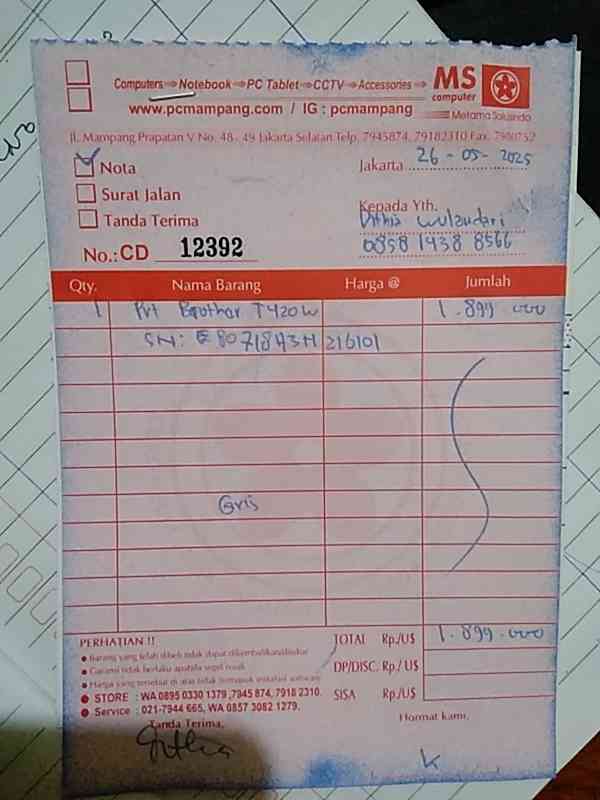 Computers ⇒ Notebook ⇒ PC Tablet ⇒ CCTV ⇒ Accessories ⇒ MS computer
www.pcmampang.com / IG : pcmampang
Metama Solusindo
JL. Mampang Prapatan V No. 48 - 49 Jakarta Selatan Telp. 7945874, 79182310 Fax.
Nota
Jakarta 26 - 05 - 2025
Surat Jalan
Kepada Yth.
Tanda Terima
Wulandari
0858 1438 8566
No.: CD 12392
Qty. Nama Barang Harga @ Jumlah
1 Prt Brother T420W 1.899.000
SN: E80718A3H216101
Gris
PERHATIAN !!
TOTAL Rp./U$ 1.899.000
Barang yang telah dibeli tidak dapat dikembalikan/ditukar
Garansi tidak berlaku apabila segel rusak
DP/DISC. Rp./ U$
Harga yang tersebut di atas tidak termasuk instalasi software
STORE : WA 0895 0330 1379 ,7945 874, 7918 2310.
SISA Rp./U$
Service : 021-7944 665, WA 0857 3082 1279.
Tanda Terima,
Hormat kami,